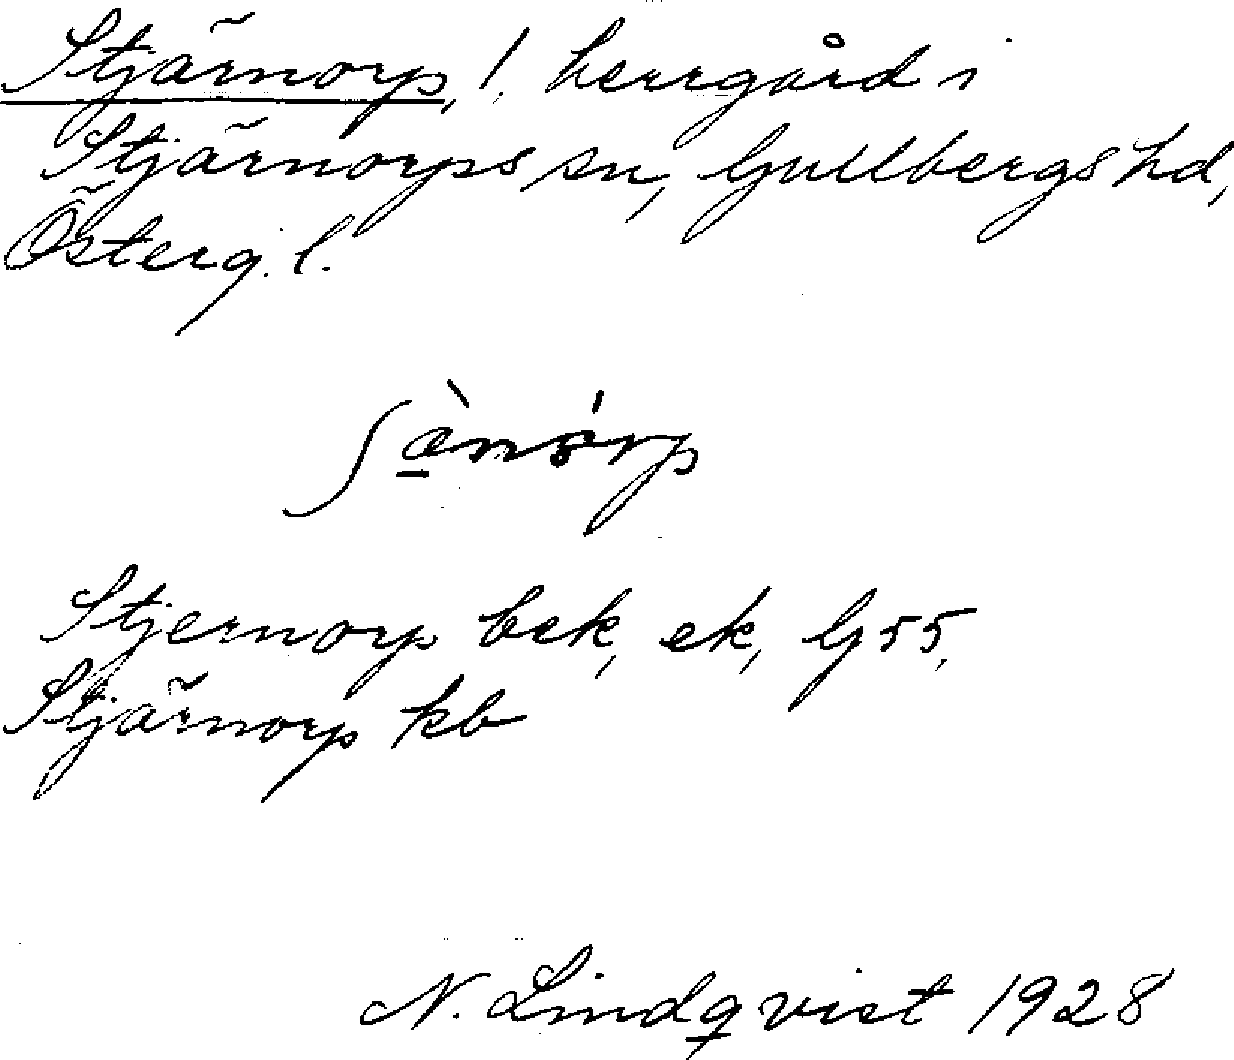 Stjärnorp, 1, herrgård i
Stjärnorps sn, Gullbergs hd,
Österg. l.
Stjernorp bek, ek, G55,
Stjärnorp kb
N. Lindqvist 1928